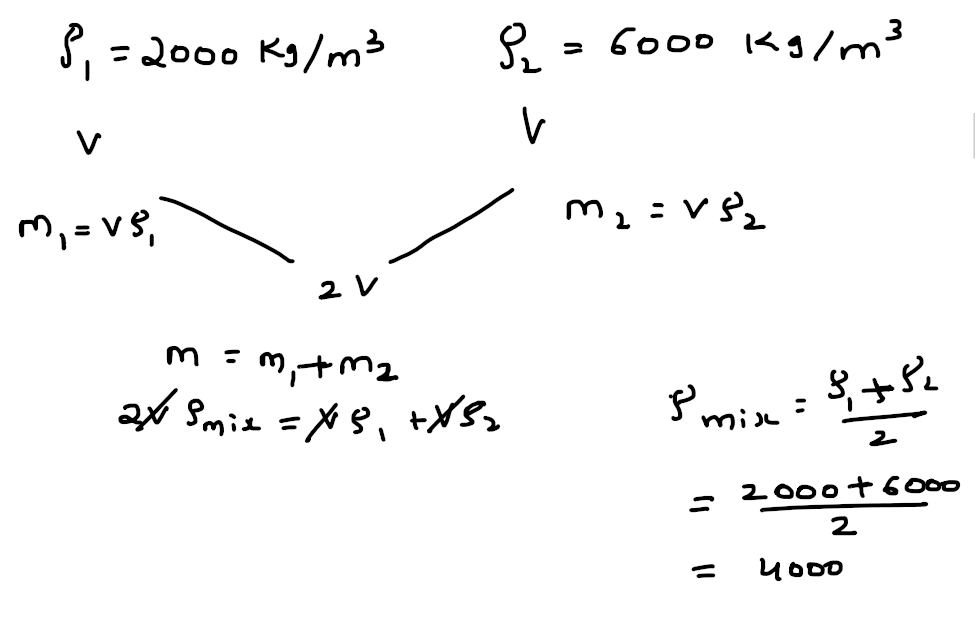 ρ₁ = 2000 Kg/m³
ρ₂ = 6000 Kg/m³
V
V
m₁ = Vρ₁
m₂ = Vρ₂
2V
m = m₁+m₂
2V ρmix = Vρ₁ + Vρ₂
ρmix = (ρ₁+ρ₂)/2
= (2000+6000)/2
= 4000